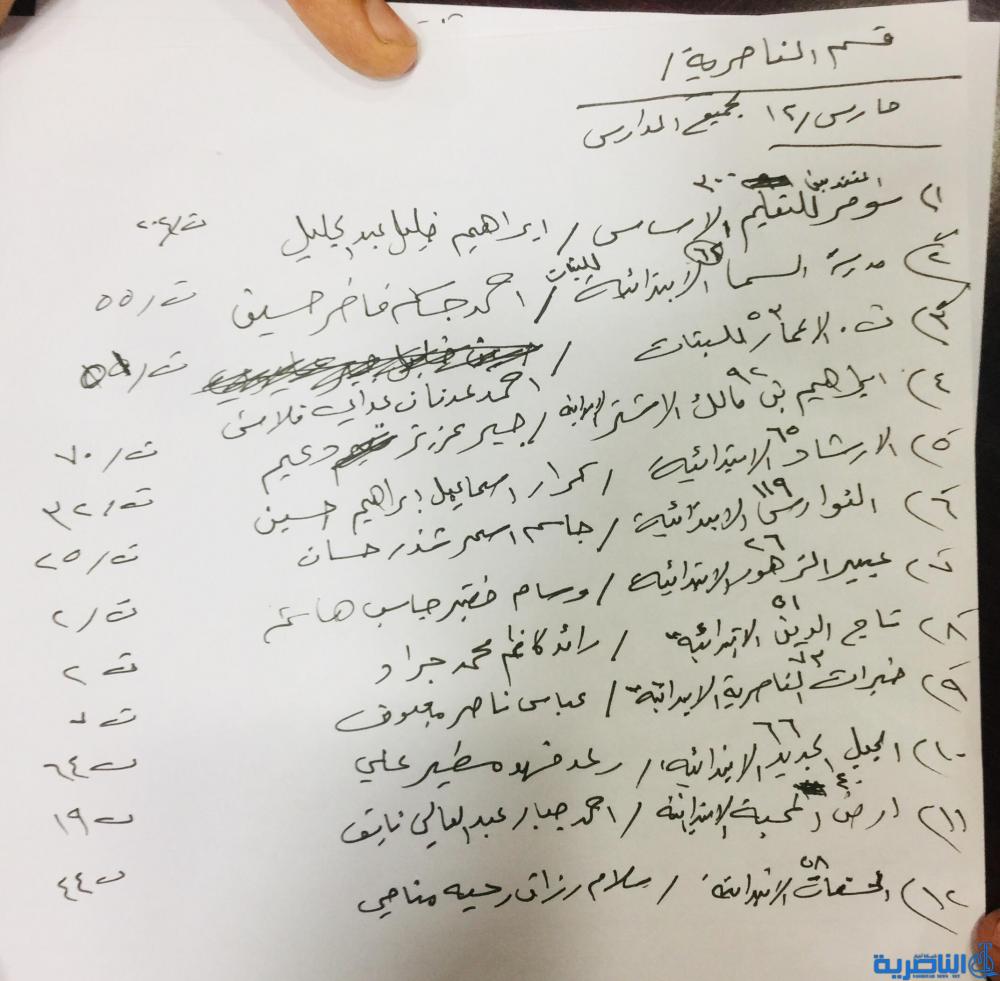 قسم الناصرية /
حارس / ١٢ بجميع المدارس
١) سومر للتعليم الاساسي / ابراهيم خليل عبد الجليل
المتميزين ٣٠٠
٢) مدينة السما ٦٢ الابتدائية للبنات / احمد جسام فاخر حسين ت / ٥٥
٣) ث . الاعمار ٣٥ للبنات / احمد عدنان عداي
٤) ابراهيم بن مالك الاشتر ٩٢ الابتدائية / جبير عزيز دعيم ت / ٧٠
٥) الارشاد ٦٥ الابتدائية / كرار اسماعيل ابراهيم حسين ت / ٣٢
٦) النوارس ١١٩ الابتدائية / جاسم اسمر شذر حسان ت / ٢٥
٧) عبير الزهور ٢٦ الابتدائية / وسام خضير جاسب هاشم ت / ٢
٨) تاج الدين ٥١ الابتدائية / رائد كاظم محمد جراد ت ٢
٩) خيرات الناصرية ٧٣ الابتدائية / عباس ناصر ت
١٠) الجيل الجديد ٦٦ الابتدائية / رعد فهد مطير علي ت ٦٤
١١) ارض المحبة ٤٠ الابتدائية / احمد جبار عبد العالي ت ١٩
١٢) ٥٨ الابتدائية / سلام رزاق مناحي ت ٤٤
شبكة أخبار الناصرية